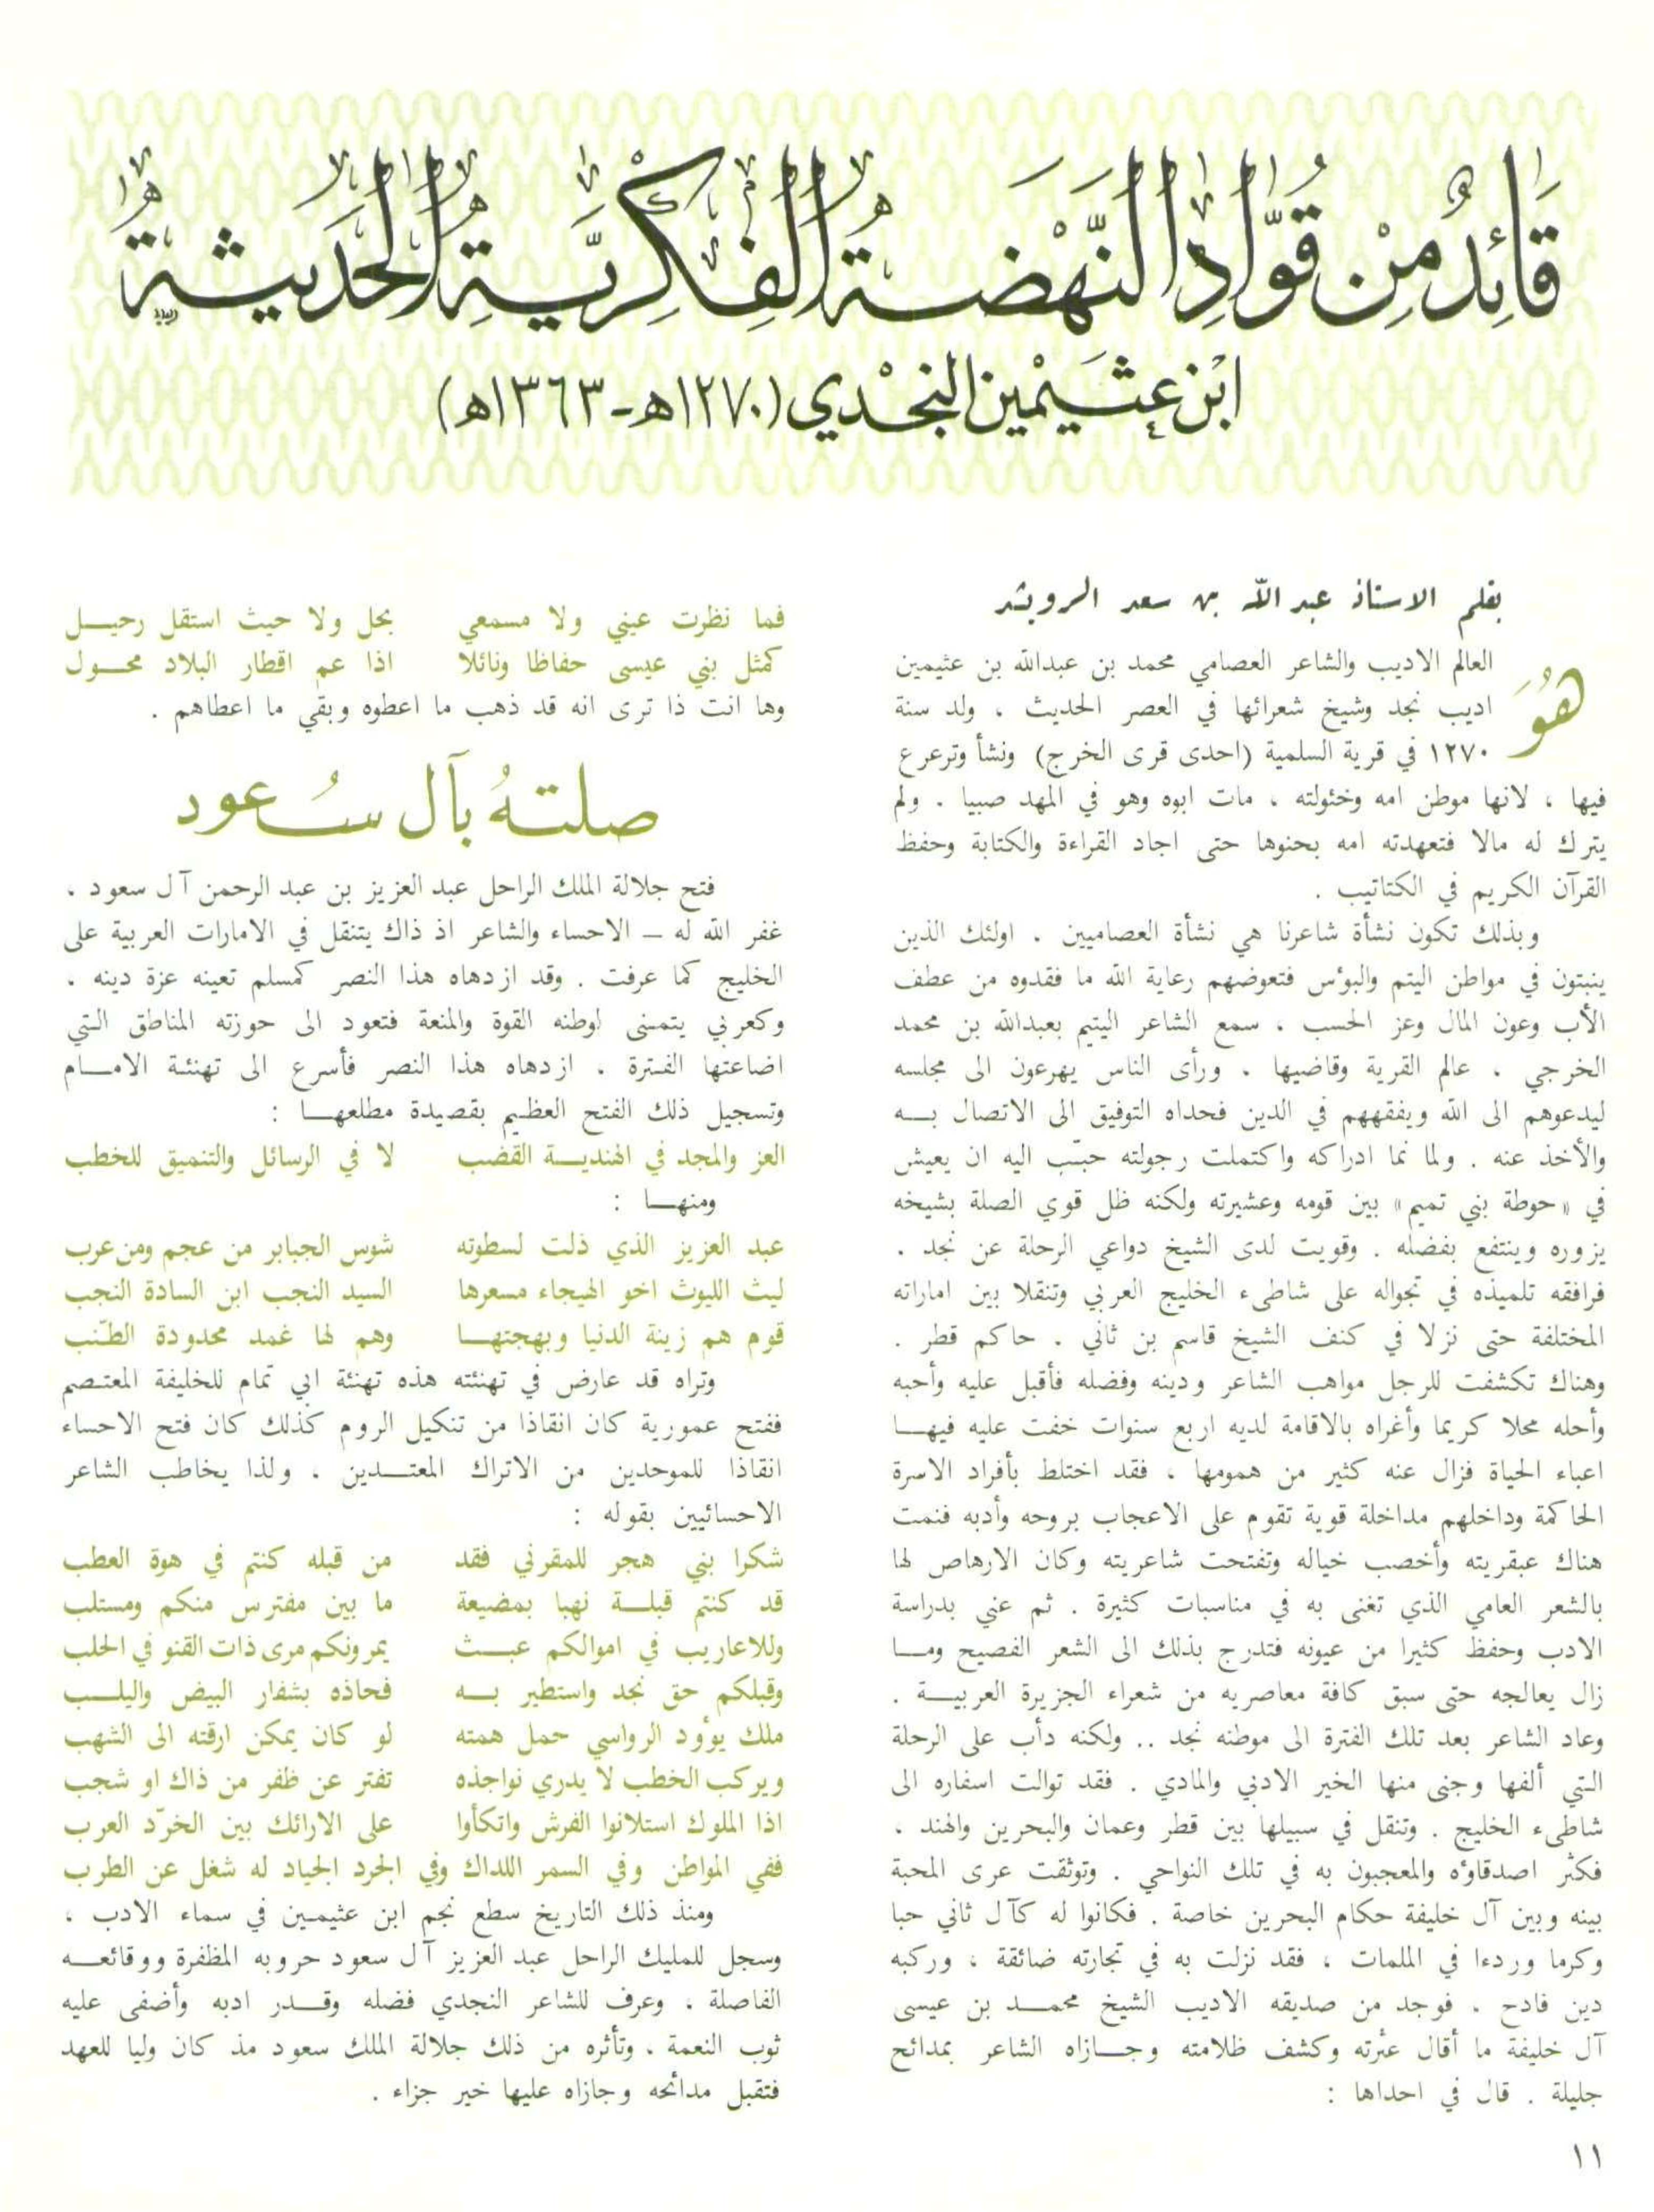 قَائِدٌ مِنْ قُوَّادِ النَّهْضَةِ الْفِكْرِيَّةِ الْحَدِيثَةِ
ابْن عثَيْمين النجْدي (١٢٧٠هـ - ١٣٦٣هـ)
بقلم الاستاذ عبد الله بن سعد الرويشد
هُوَ العالم الاديب والشاعر العصامي محمد بن عبدالله بن عثيمين
اديب نجد وشيخ شعرائها في العصر الحديث ، ولد سنة
١٢٧٠ في قرية السلمية (احدى قرى الخرج) ونشأ وترعرع
فيها ، لانها موطن امه وخئولته ، مات ابوه وهو في المهد صبيا . ولم
يترك له مالا فتعهدته امه بحنوها حتى اجاد القراءة والكتابة وحفظ
القرآن الكريم في الكتاتيب .
وبذلك تكون نشأة شاعرنا هي نشأة العصاميين . اولئك الذين
ينبتون في مواطن اليتم والبؤس فتعوضهم رعاية الله ما فقدوه من عطف
الأب وعون المال وعز الحسب ، سمع الشاعر اليتيم بعبدالله بن محمد
الخرجي . عالم القرية وقاضيها . ورأى الناس يهرعون الى مجلسه
ليدعوهم الى الله ويفقههم في الدين فحداه التوفيق الى الاتصال بـه
والأخذ عنه . ولما نما ادراكه واكتملت رجولته حبّب اليه ان يعيش
في «حوطة بني تميم» بين قومه وعشيرته ولكنه ظل قوي الصلة بشيخه
يزوره وينتفع بفضله . وقويت لدى الشيخ دواعي الرحلة عن نجد .
فرافقه تلميذه في تجواله على شاطىء الخليج العربي وتنقلا بين اماراته
المختلفة حتى نزلا في كنف الشيخ قاسم بن ثاني . حاكم قطر .
وهناك تكشفت للرجل مواهب الشاعر ودينه وفضله فأقبل عليه وأحبه
وأحله محلا كريما وأغراه بالاقامة لديه اربع سنوات خفت عليه فيهـا
اعباء الحياة فزال عنه كثير من همومها ، فقد اختلط بأفراد الاسرة
الحاكمة وداخلهم مداخلة قوية تقوم على الاعجاب بروحه وأدبه فنمت
هناك عبقريته وأخصب خياله وتفتحت شاعريته وكان الارهاص لها
بالشعر العامي الذي تغنى به في مناسبات كثيرة . ثم عني بدراسة
الادب وحفظ كثيرا من عيونه فتدرج بذلك الى الشعر الفصيح ومـا
زال يعالجه حتى سبق كافة معاصريه من شعراء الجزيرة العربيـة .
وعاد الشاعر بعد تلك الفترة الى موطنه نجد .. ولكنه دأب على الرحلة
التي ألفها وجنى منها الخير الادبي والمادي . فقد توالت اسفاره الى
شاطىء الخليج . وتنقل في سبيلها بين قطر وعمان والبحرين والهند ،
فكثر اصدقاؤه والمعجبون به في تلك النواحي . وتوثقت عرى المحبة
بينه وبين آل خليفة حكام البحرين خاصة . فكانوا له كآل ثاني حبا
وكرما وردءا في الملمات ، فقد نزلت به في تجارته ضائقة ، وركبه
دين فادح . فوجد من صديقه الاديب الشيخ محمـد بن عيسى
آل خليفة ما أقال عثرته وكشف ظلامته وجـازاه الشاعر بمدائح
جليلة . قال في احداها :
فما نظرت عيني ولا مسمعي بحل ولا حيث استقل رحيـل
كمثل بني عيسى حفاظا ونائلا اذا عم اقطار البلاد محـول
وها انت ذا ترى انه قد ذهب ما اعطوه وبقي ما اعطاهم .
صلتهُ بآل سُعود
فتح جلالة الملك الراحل عبد العزيز بن عبد الرحمن آل سعود ،
غفر الله له – الاحساء والشاعر اذ ذاك يتنقل في الامارات العربية على
الخليج كما عرفت . وقد ازدهاه هذا النصر كمسلم تعينه عزة دينه ،
وكعربي يتمنى لوطنه القوة والمنعة فتعود الى حوزته المناطق التي
اضاعتها الفترة . ازدهاه هذا النصر فأسرع الى تهنئة الامـام
وتسجيل ذلك الفتح العظيم بقصيدة مطلعهـا :
العز والمجد في الهنديـة القضب لا في الرسائل والتنميق للخطب
ومنهـا :
عبد العزيز الذي ذلت لسطوته شوس الجبابر من عجم ومن عرب
ليث الليوث اخو الهيجاء مسعرها السيد النجب ابن السادة النجب
قوم هم زينة الدنيا وبهجتهـا وهم لها غمد محدودة الطّنب
وتراه قد عارض في تهنئته هذه تهنئة ابي تمام للخليفة المعتـصم
ففتح عمورية كان انقاذا من تنكيل الروم كذلك كان فتح الاحساء
انقاذا للموحدين من الاتراك المعتـدين . ولذا يخاطب الشاعر
الاحسائيين بقوله :
شكرا بني هجر للمقرني فقد من قبله كنتم في هوة العطب
قد كنتم قبلـة نهبا بمضيعة ما بين مفترس منكم ومستلب
وللاعاريب في اموالكم عبـث يمرونكم مرى ذات القنو في الحلب
وقبلكم حق نجد واستطير بـه فحاذه بشفار البيض واليلـب
ملك يوؤد الرواسي حمل همته لو كان يمكن ارقته الى الشهب
ويركب الخطب لا يدري نواجذه تفتر عن ظفر من ذاك او شجب
اذا الملوك استلانوا الفرش واتكأوا على الارائك بين الخرّد العرب
ففي المواطن وفي السمر اللداك وفي الجرد الجياد له شغل عن الطرب
ومنذ ذلك التاريخ سطع نجم ابن عثيمين في سماء الادب ،
وسجل للمليك الراحل عبد العزيز آل سعود حروبه المظفرة ووقائعـه
الفاصلة . وعرف للشاعر النجدي فضله وقـدر ادبه وأضفى عليه
ثوب النعمة . وتأثره من ذلك جلالة الملك سعود مذ كان وليا للعهد
فتقبل مدائحه وجازاه عليها خير جزاء .
١١